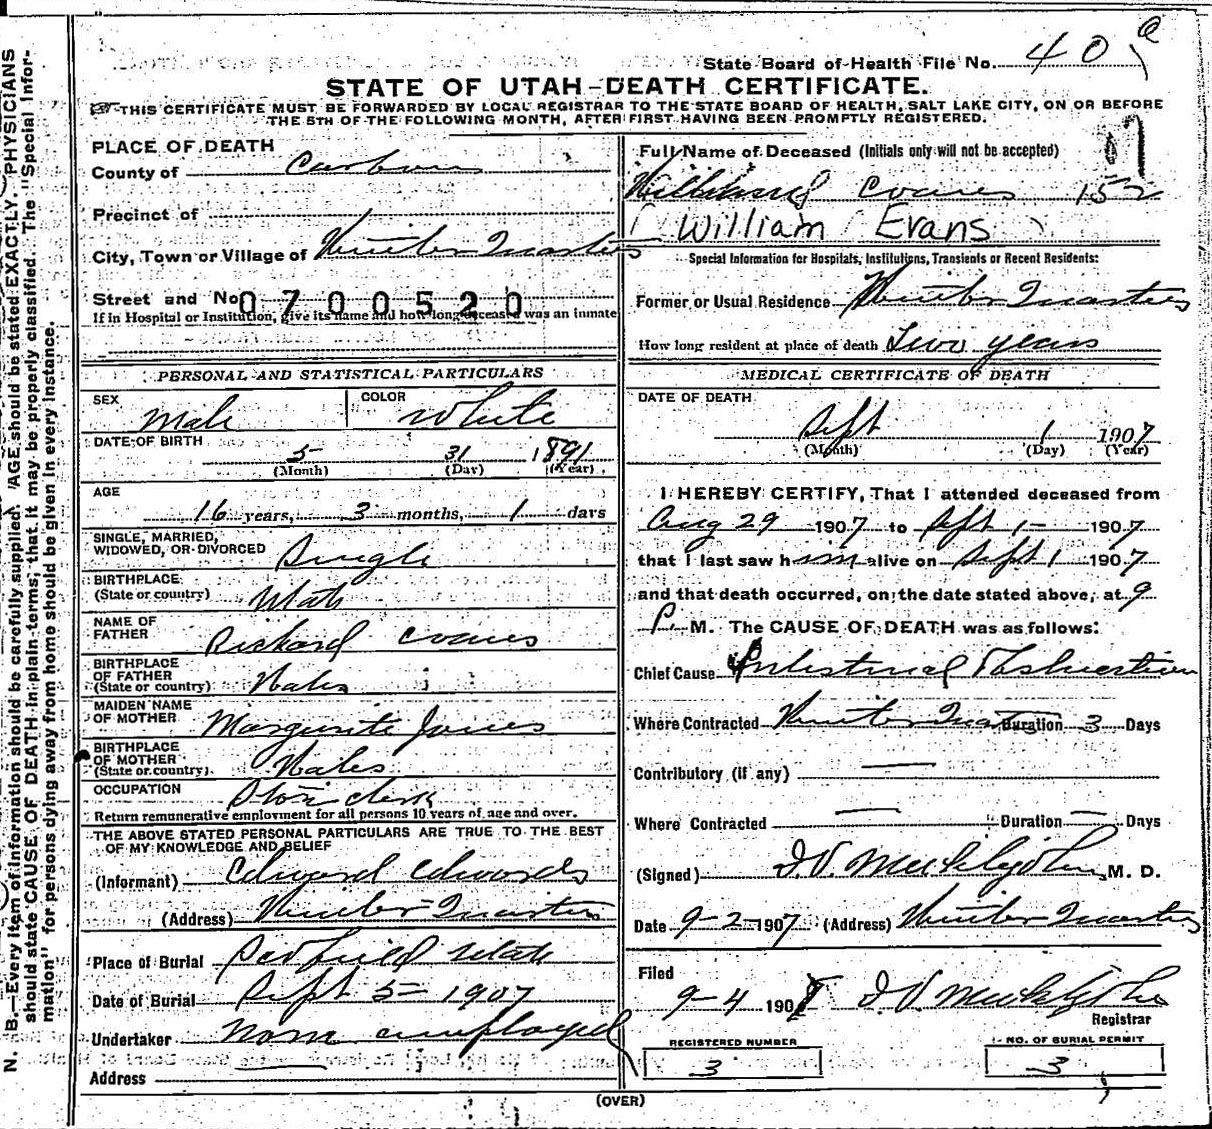 State Board of Health File No. 40
STATE OF UTAH—DEATH CERTIFICATE.
THIS CERTIFICATE MUST BE FORWARDED BY LOCAL REGISTRAR TO THE STATE BOARD OF HEALTH, SALT LAKE CITY, ON OR BEFORE
THE 5TH OF THE FOLLOWING MONTH, AFTER FIRST HAVING BEEN PROMPTLY REGISTERED.
PLACE OF DEATH
County of Carbon
Precinct of
City, Town or Village of Winter Quarters
Street and No.
0700520
If in Hospital or Institution, give its name and how long deceased was an inmate
PERSONAL AND STATISTICAL PARTICULARS
SEX Male
COLOR White
DATE OF BIRTH
5 31 1891
(Month) (Day) (Year)
AGE
16 years, 3 months, 1 days
SINGLE, MARRIED,
WIDOWED, OR DIVORCED Single
BIRTHPLACE
(State or country) Utah
NAME OF
FATHER Richard Evans
BIRTHPLACE
OF FATHER
(State or country) Wales
MAIDEN NAME
OF MOTHER Margurite Jones
BIRTHPLACE
OF MOTHER
(State or country). Wales
OCCUPATION Store clerk
Return remunerative employment for all persons 10 years of age and over.
THE ABOVE STATED PERSONAL PARTICULARS ARE TRUE TO THE BEST
OF MY KNOWLEDGE AND BELIEF
(Informant) Edward Edwards
(Address) Winter Quarters
Place of Burial Scofield Utah
Date of Burial Sept 5 - 1907
Undertaker None employed
Address
Full Name of Deceased (Initials only will not be accepted)
Evans 152
(William Evans)
Special Information for Hospitals, Institutions, Transients or Recent Residents:
Former or Usual Residence Winter Quarters
How long resident at place of death Two years
MEDICAL CERTIFICATE OF DEATH
DATE OF DEATH
Sept 1 1907
(Month) (Day) (Year)
I HEREBY CERTIFY, That I attended deceased from
Aug 29 1907 to Sept 1- 1907
that I last saw him alive on Sept 1 1907
and that death occurred, on the date stated above, at 9
P. M. The CAUSE OF DEATH was as follows:
Chief Cause Intestinal Obstruction
Where Contracted Winter Quarters Duration 3 Days
Contributory (if any) —
Where Contracted — Duration — Days
(Signed) M. D.
Date 9-2-1907 (Address) Winter Quarters
Filed
9-4 1907
Registrar
REGISTERED NUMBER
3
NO. OF BURIAL PERMIT
3
(OVER)
N. B.—Every item of information should be carefully supplied. AGE should be stated EXACTLY. PHYSICIANS
should state CAUSE OF DEATH in plain terms, that it may be properly classified. The "Special Infor-
mation" for persons dying away from home should be given in every instance.